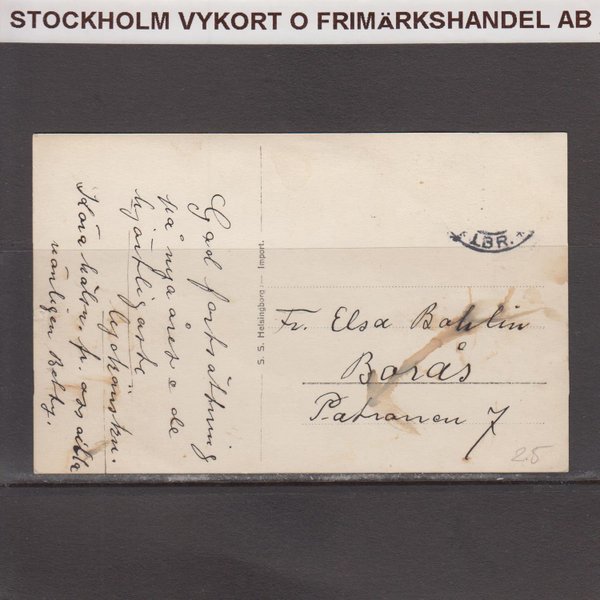 STOCKHOLM VYKORT O FRIMÄRKSHANDEL AB
God fortsättning
på nya året o de
hjärtligaste
lyckönskn.
Kära hälsn. fr. oss alla
vänligen Betty.
S. S. Helsingborg — Import.
* LBR. *
Fr. Elsa Bohlin
Borås
Patronen 7
25